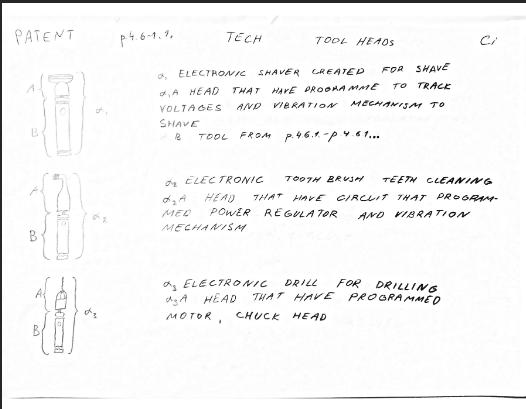 PATENT p.4.6-1.1. TECH TOOL HEADS Ci
α₁ ELECTRONIC SHAVER CREATED FOR SHAVE
α₁A HEAD THAT HAVE PROGRAMME TO TRACK
VOLTAGES AND VIBRATION MECHANISM TO
SHAVE
B TOOL FROM p.4.6.1.-p 4.61...
A
B
α₁
α₂ ELECTRONIC TOOTH BRUSH TEETH CLEANING
α₂A HEAD THAT HAVE CIRCUIT THAT PROGRAM-
MED POWER REGULATOR AND VIBRATION
MECHANISM
A
B
α₂
α₃ ELECTRONIC DRILL FOR DRILLING
α₃A HEAD THAT HAVE PROGRAMMED
MOTOR, CHUCK HEAD
A
B
α₃